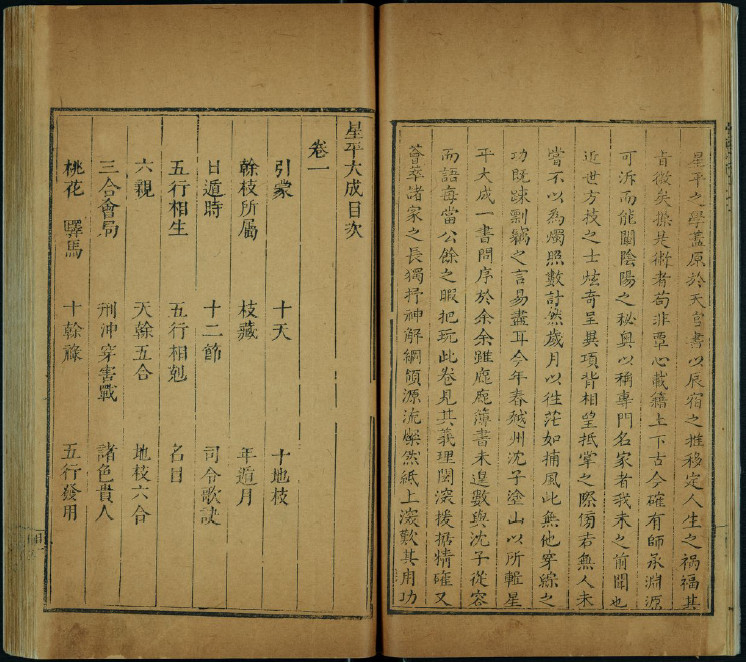 星平之學蓋原於天官書以辰宿之推移定人生之禍福其
旨微矣操是術者苟非覃心載籍上下古今確有師承淵源
可泝而能闡陰陽之秘奥以稱專門名家者我未之前聞也
近世方技之士炫奇呈異項背相望抵掌之際傍若無人未
嘗不以為燭照數計然歲月以徃茫如捕風此無他穿綜之
功既踈剽竊之言易盡耳今年春越州沈子塗山以所輯星
平大成一書問序於余余雖庬庬薄書未遑數與沈子從容
而語每當公餘之暇把玩此卷見其義理閎深援据精確又
薈萃諸家之長獨抒神解綱領源流燦然紙上深歎其用功
星平大成目次
卷一
引蒙 十天 十地枝
榦枝所屬 枝藏 年遁月
日遁時 十二節 司令歌訣
五行相生 五行相剋 名目
六親 天榦五合 地枝六合
三合會局 刑冲穿害戰 諸色貴人
桃花 驛馬 十榦祿 五行發用